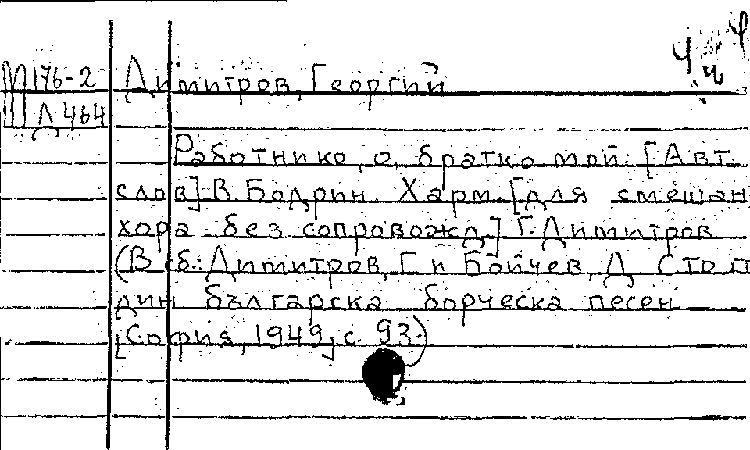 М 176-2 Димитров, Георгий
Л 464
Работнико, о, братко мой. [Авт.
слов] В. Бодрин. Харм. [для смешан.
хора без сопровожд.] Г. Димитров
(В сб.: Димитров, Г. и Бойчев, Д. Сто и
дин българска борческа песен
[София, 1949, с. 93.)